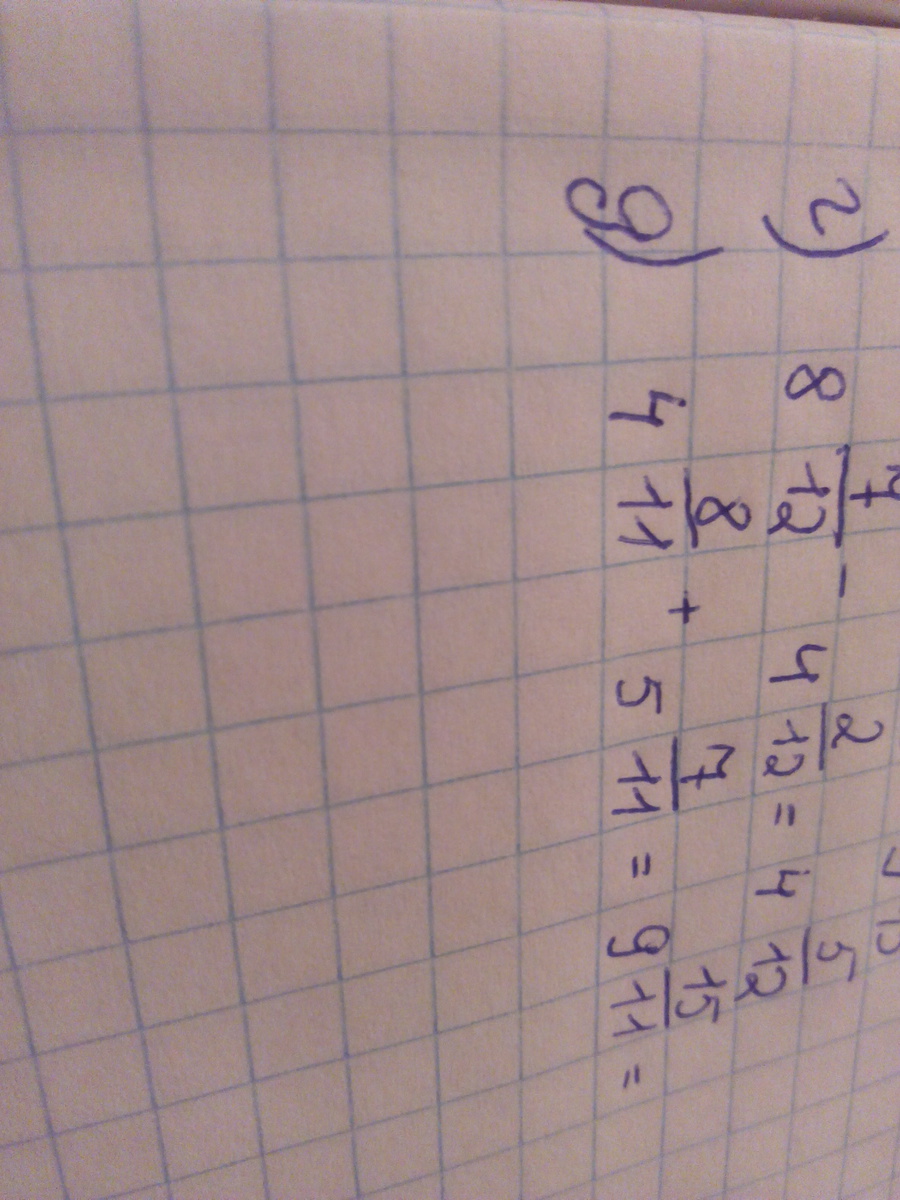 г) 8 7/12 - 4 2/12 = 4 5/12
д) 4 8/11 + 5 7/11 = 9 15/11 =